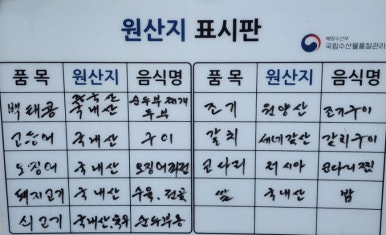 원산지 표시판
해양수산부
국립수산물품질관리
품 목 원산지 음식명 품 목 원산지 음식명
백태콩 중국산 국내산 순두부찌개 두부 조기 원양산 조기구이
고등어 국내산 구이 갈치 세네갈산 갈치구이
오징어 국내산 오징어파전 코다리 러시아 코다리찜
돼지고기 국내산 수육. 전골 쌀 국내산 밥
쇠고기 국내산.육우 순두부용